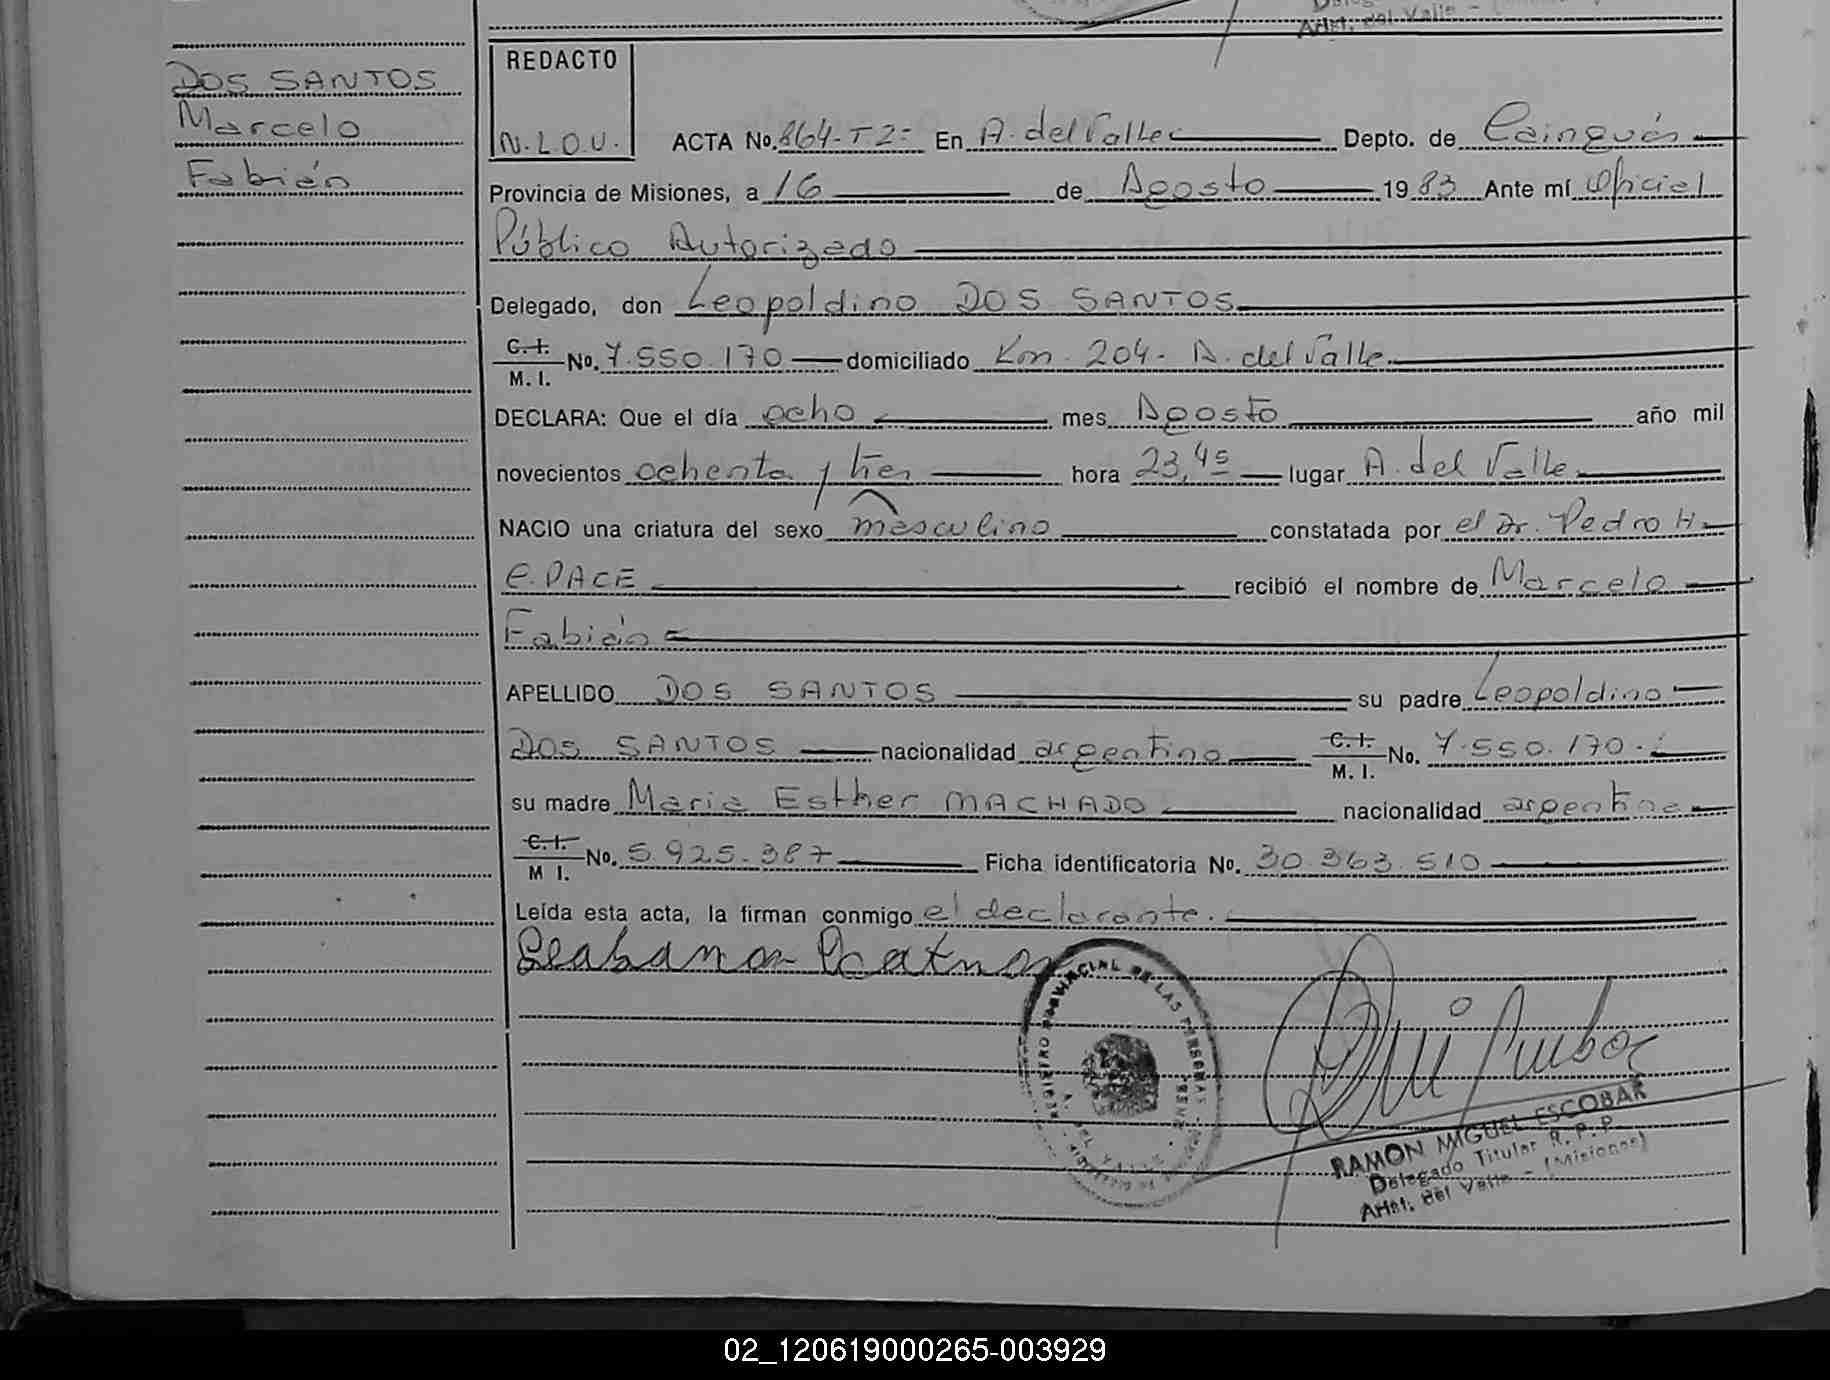 Arist. del Valle -
DOS SANTOS
Marcelo
Fabián
REDACTO
N.L.O.U.
ACTA No. 864-T2- En A. del Valle Depto. de Cainguás
Provincia de Misiones, a 16 de Agosto 1983 Ante mí Oficial
Público Autorizado
Delegado, don Leopoldino DOS SANTOS
C.I. M.I. No. 7.550.170 domiciliado Km. 204- A. del Valle
DECLARA: Que el día ocho mes Agosto año mil
novecientos ochenta y tres hora 23,45 lugar A. del Valle
NACIO una criatura del sexo masculino constatada por el Dr. Pedro H.
E. PACE recibió el nombre de Marcelo
Fabián
APELLIDO DOS SANTOS su padre Leopoldino
DOS SANTOS nacionalidad argentino C.I. M.I. No. 7.550.170.
su madre Maria Esther MACHADO nacionalidad argentina
C.I. M I. No. 5.925.387 Ficha identificatoria No. 30.363.510
Leída esta acta, la firman conmigo el declarante.
REGISTRO PROVINCIAL DE LAS PERSONAS
RAMON MIGUEL ESCOBAR
Delegado Titular R.P.P.
Arist. del Valle - (Misiones)
02_120619000265-003929